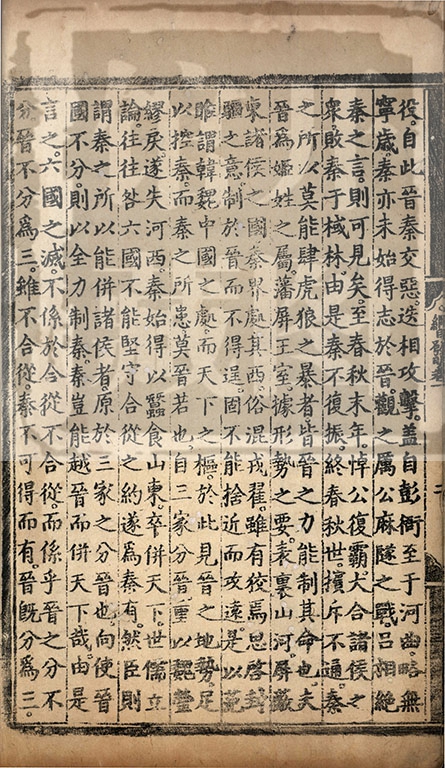 役。自此晉秦交惡。迭相攻擊。盖自彭衙至于河曲。略無
寧歲。秦亦未始得志於晉。觀之厲公麻隧之戰。呂相絶
秦之言。則可見矣。至春秋末年。悼公復霸。大合諸侯之
衆。敗秦于棫林。由是秦不復振。終春秋世。擯斥不通。秦
之所以莫能肆虎狼之暴者。皆晉之力能制其命也。夫
晉爲姬姓之屬。藩屏王室。據形勢之要。表裏山河。屏蔽
東諸侯之國。秦界處其西。俗混戎翟。雖有狡焉思啓封
疆之意。制於晉而不得逞。固不能捨近而攻遠。是以范
睢謂韓魏中國之處。而天下之樞。於此見晉之地勢。足
以控秦。而秦之所患莫晉若也。自三家分晉。重以魏瑩
繆戾。遂失河西。秦始得以蠶食山東。卒併天下。世儒立
論。往往咎六國不能堅守合從之約。遂爲秦有。然臣則
謂秦之所以能併諸侯者。原於三家之分晉也。向使晉
國不分。則以全力制秦。秦豈能越晉而併天下哉。由是
言之。六國之滅。不係於合從不合從。而係乎晉之分不
分。晉不分爲三。雖不合從。秦不可得而有。晉旣分爲三。